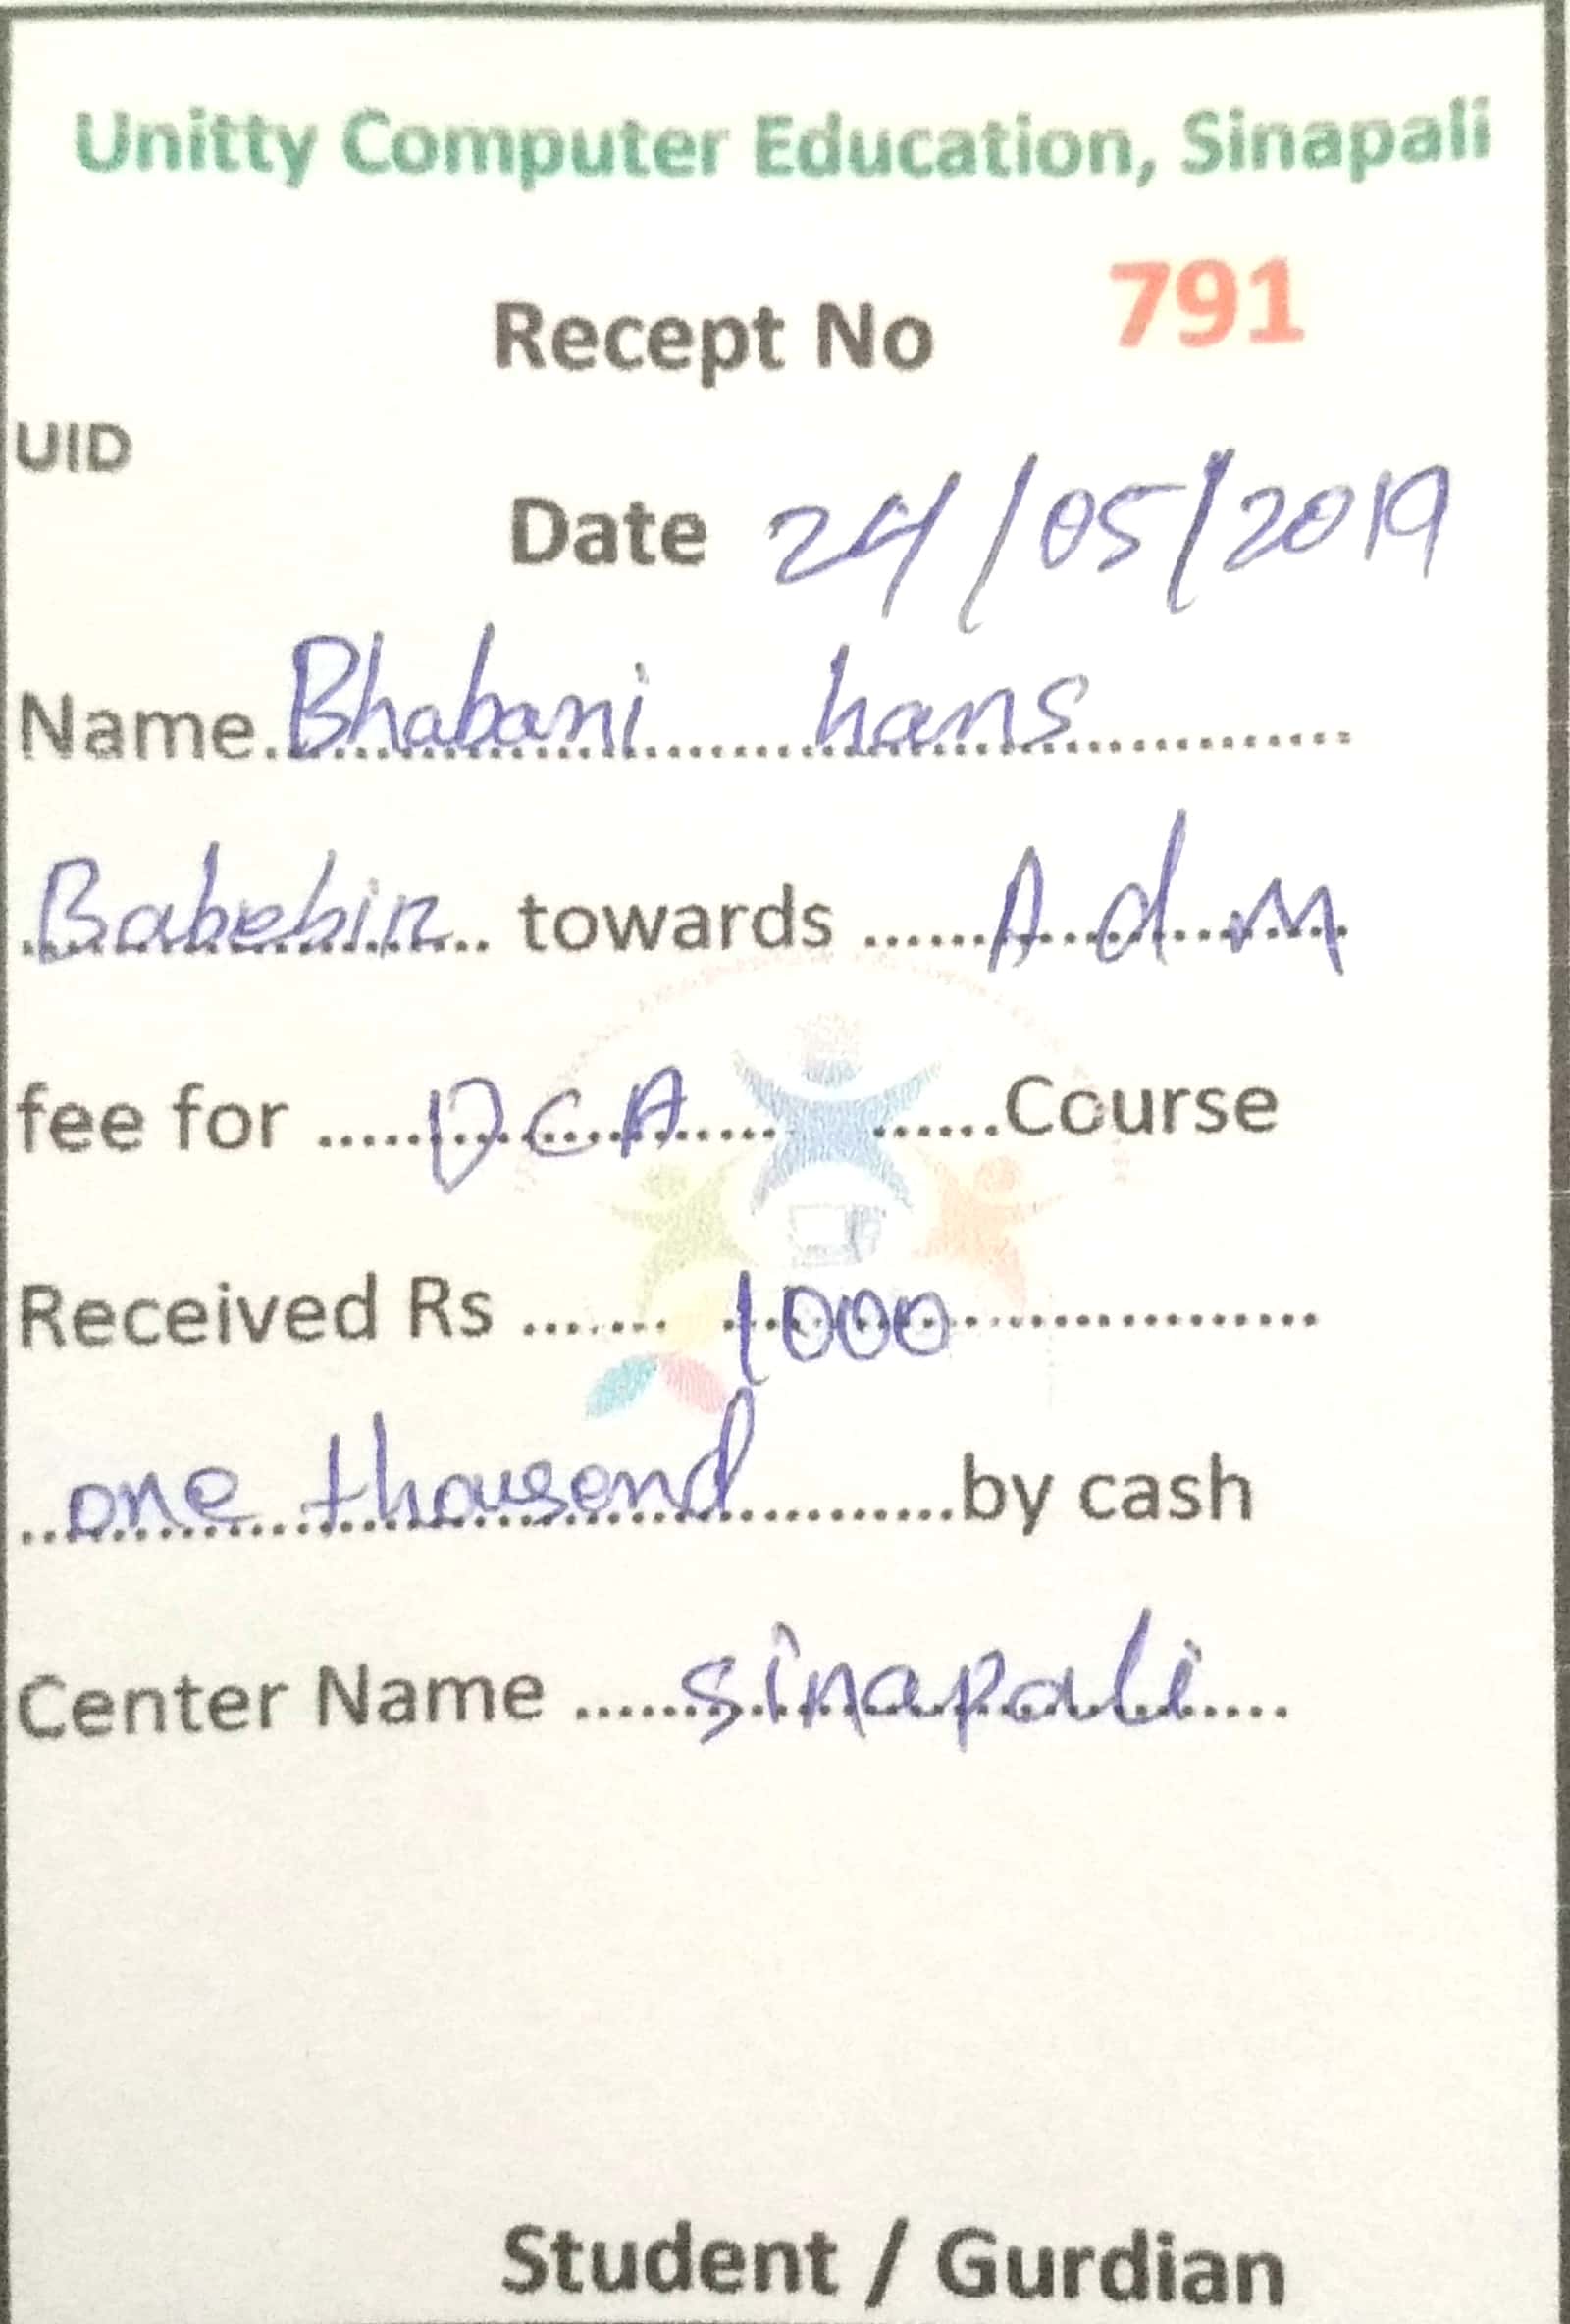 Unitty Computer Education, Sinapali
Recept No 791
UID
Date 24/05/2019
Name Bhabani hans
Babebir towards Adm
fee for DCA Course
Received Rs 1000
one thousend by cash
Center Name sinapali
Student / Gurdian